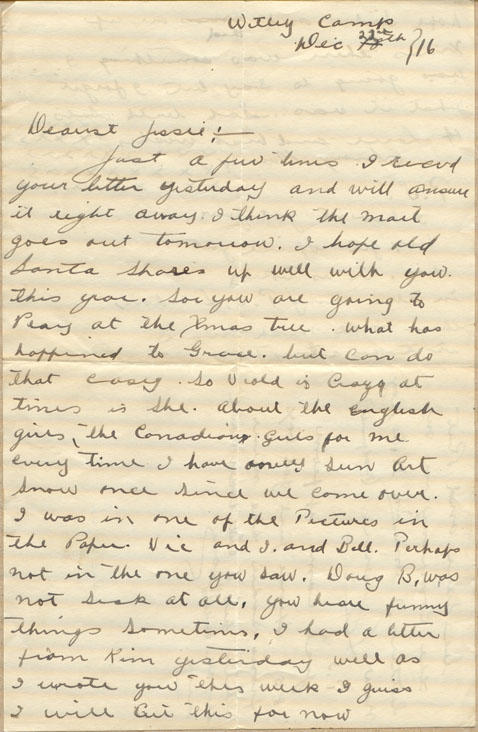 Witley Camp
Dec 22nd /16
Dearest Jessie:-
Just a few lines I recevd
your letter yesterday and will answer
it right away. I think the mail
goes out tomorrow. I hope old
Santa shares up well with you
this year. Soe you are going to
Peary at the Xmas tree. what has
happined to Grace. but can do
that easey. So Viold is Crazy at
times is she. About the English
girls, the Canadians girls for me
every time I have only seen
snow once since we come over.
I was in one of the Pictures in
the Paper. Vic and I. and Bill. Perhaps
not in the one you saw. Doug B, was
not sick at all, you hear funny
things sometims, I had a letter
from Kim yesterday well as
I wrote you this week I guess
I will Cut this for now